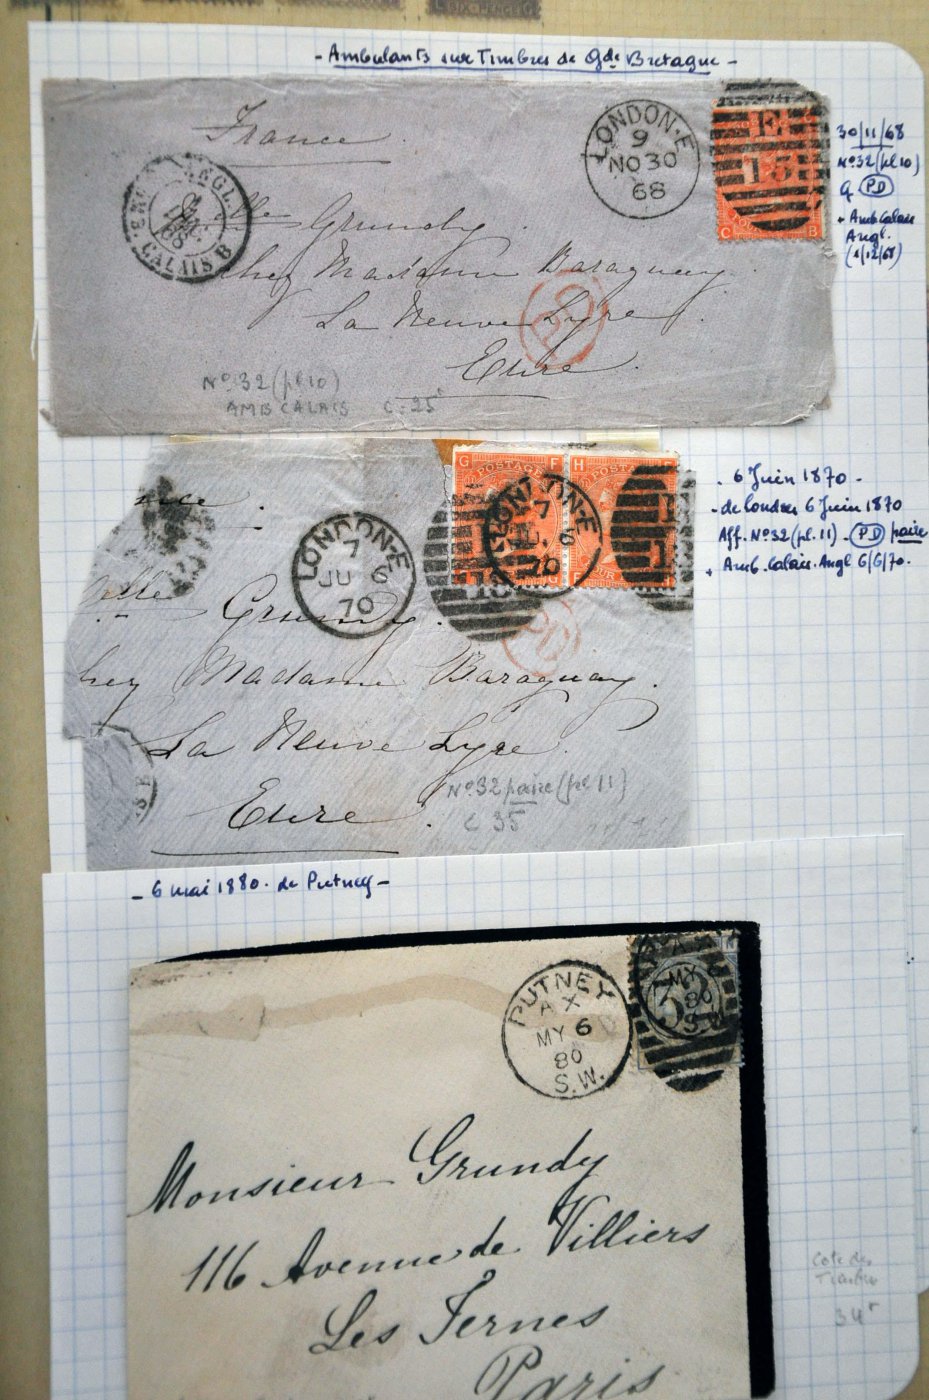 - Ambulants sur Timbres de Gde Bretagne -
France
LONDON-E
9
NO 30
68
E
15
C B
ANGL.
2
DEC.
68
CALAIS B
Melle Grundy
chez Madame Baraguay
La Neuve Lyre
Eure
PD
No 32 (pl 10)
AMB CALAIS C. 25F
30/11/68
No 32 (pl 10)
PD
+ Amb Calais
Angl.
(1/12/68)
G F
H F
POSTAGE
LONDON-E
7
JU 6
70
LONDON-E
7
JU 6
70
Melle Grundy.
chez Madame Baraguay.
La Neuve Lyre.
Eure.
PD
No 32 paire (pl 11)
C 35
. 6 Juin 1870 -
- de Londres 6 Juin 1870
Aff. No 32 (pl. 11) - PD paire
+ Amb. Calais. Angl 6/6/70.
- 6 mai 1880. de Putney -
PUTNEY
A X
MY 6
80
S.W.
MY 6
80
S.W.
Monsieur Grundy
116 Avenue de Villiers
Les Ternes
Paris
Cote des
Timbres
34F